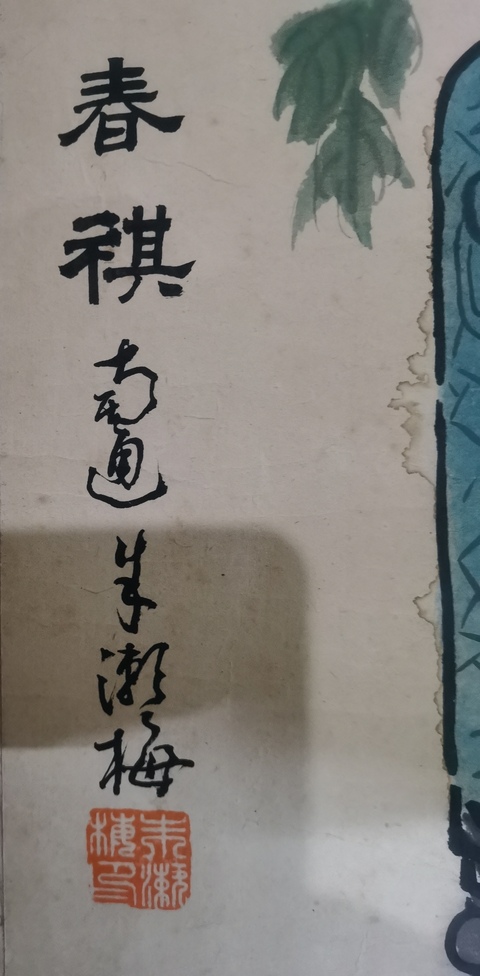 春祺南通朱漱梅
朱漱
梅印